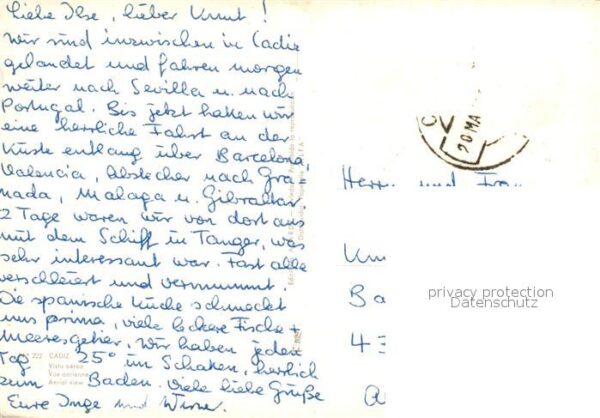 Liebe Ilse, lieber Knut!
Wir sind inzwischen in Cadiz
gelandet und fahren morgen
weiter nach Sevilla u. nach
Portugal. Bis jetzt hatten wir
eine herrliche Fahrt an der
Küste entlang über Barcelona,
Valencia, Abstecher nach Gra-
nada, Malaga u. Gibraltar.
2 Tage waren wir von dort aus
mit dem Schiff in Tanger, was
sehr interessant war. Fast alle
verschleiert und vermummt.
Die spanische Küche schmeckt
uns prima, viele leckere Fische +
Meeresgetier. Wir haben jeden
Tag 25° im Schatten, herrlich
zum Baden. Viele liebe Grüße
Eure Inge und
222 - CADIZ
Vista aérea
Vue aérienne
Aerial view
20 MA
Herrn und
Knu
Ba
privacy protection
Datenschutz